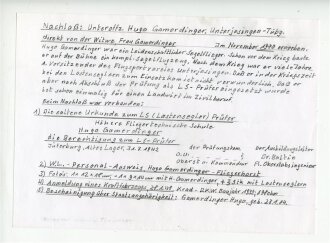 Nachlaß: Unteroffz. Hugo Gamerdinger, Unterjesingen - Tübg.
direkt von der Witwe, Frau Gamerdinger im November 1990 erworben.
Hugo Gamerdinger war ein leidenschaftlicher Segelflieger. Schon vor dem Kriege baute
er auf der Bühne ein kompl. Segelflugzeug. Nach dem Krieg war er Jahre
1. Vorsitzender des Flugsportvereins Unterjesingen. Daß er in der Kriegszeit
bei den Lastenseglern zum Einsatz kam ist nicht verwunderlich. Daß er
aber nach Abschluß der Prüfung als LS-Prüfer eingesetzt wurde
ist schon einmalig für einen Landwirt im Zivilberuf.
Beim Nachlaß war vorhanden:
1) Die seltene Urkunde zum LS (Lastensegler) Prüfer
Höhere Fliegertechnische Schule
Hugo Gamerdinger
die Berechtigung zum LS-Prüfer
Jüterbog, Altes Lager, 31.7.1942 der Prüfungskom. Der Ausbildungsleiter
Oberst u. Kommandeur Fl. Oberstabsingenieur
2) W.L. - Personal-Ausweis, Hugo Gamerdinger - Fliegerhorst
3) Fotos: mit Lastenseglern
4) Anmeldung eines Kraftfahrzeugs, Krad - DKW
5) Bescheinigung über Staatsangehörigkeit: Gamerdinger Hugo, geb.